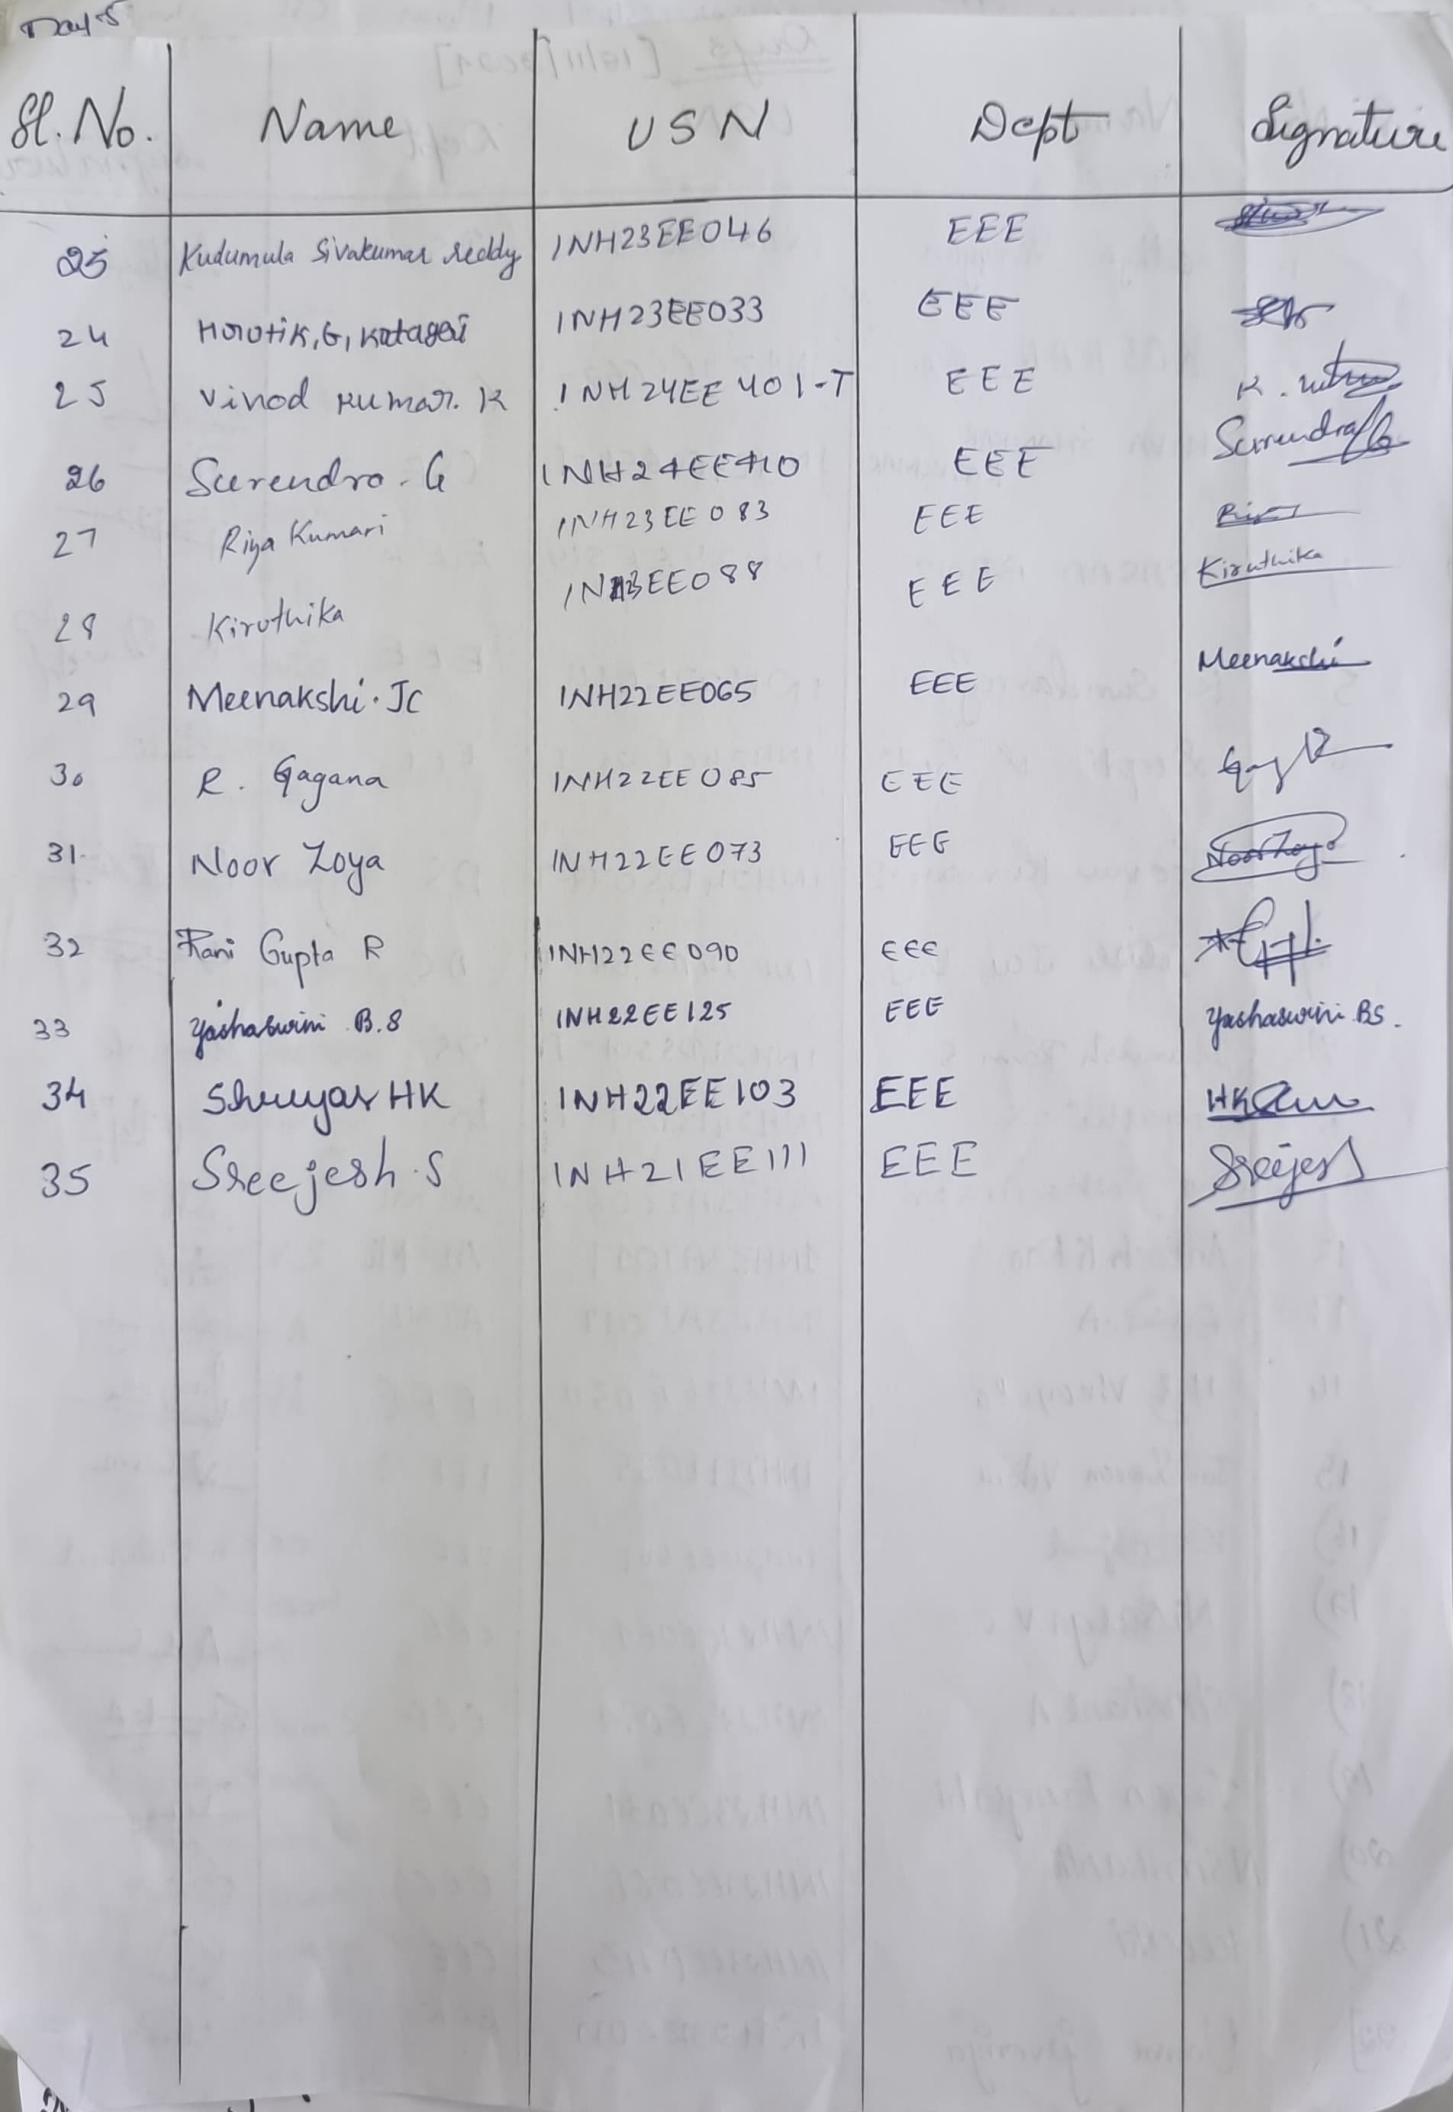 Day 5
Sl. No. Name USN Dept Signature
23 Kudumula Sivakumar reddy 1NH23EE046 EEE
24 Hrutik, G, Katageri 1NH23EE033 EEE
25 Vinod Kumar. K 1NH24EE401-T EEE K.
26 Surendra. G 1NH24EE410 EEE Surendra G
27 Riya Kumari 1NH23EE083 EEE Riya
28 Kiruthika 1NH23EE088 EEE Kiruthika
29 Meenakshi. JC 1NH22EE065 EEE Meenakshi
30 R. Gagana 1NH22EE085 EEE
31. Noor Zoya 1NH22EE073 EEE Noor Zoya
32 Rani Gupta R 1NH22EE090 EEE
33 Yashaswini B.S 1NH22EE125 EEE Yashaswini BS.
34 Shreyas HK 1NH22EE103 EEE HK
35 Sreejesh. S 1NH21EE111 EEE Sreejesh